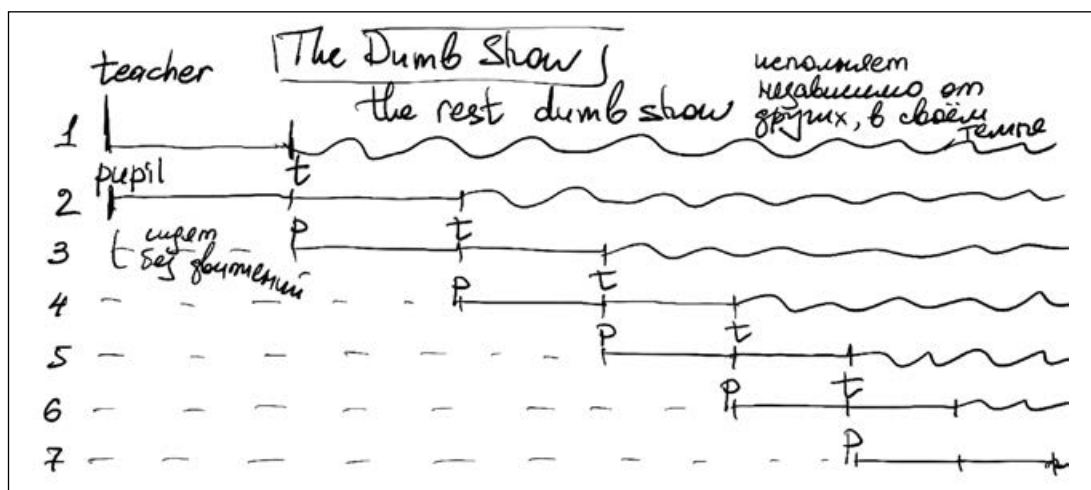 The Dumb Show
teacher
the rest dumb show
исполняет
независимо от
других, в своём
темпе
1
t
pupil
2
p t
3
t сидят
без движений
t
4
p
t
5
p
t
6
p
7
p